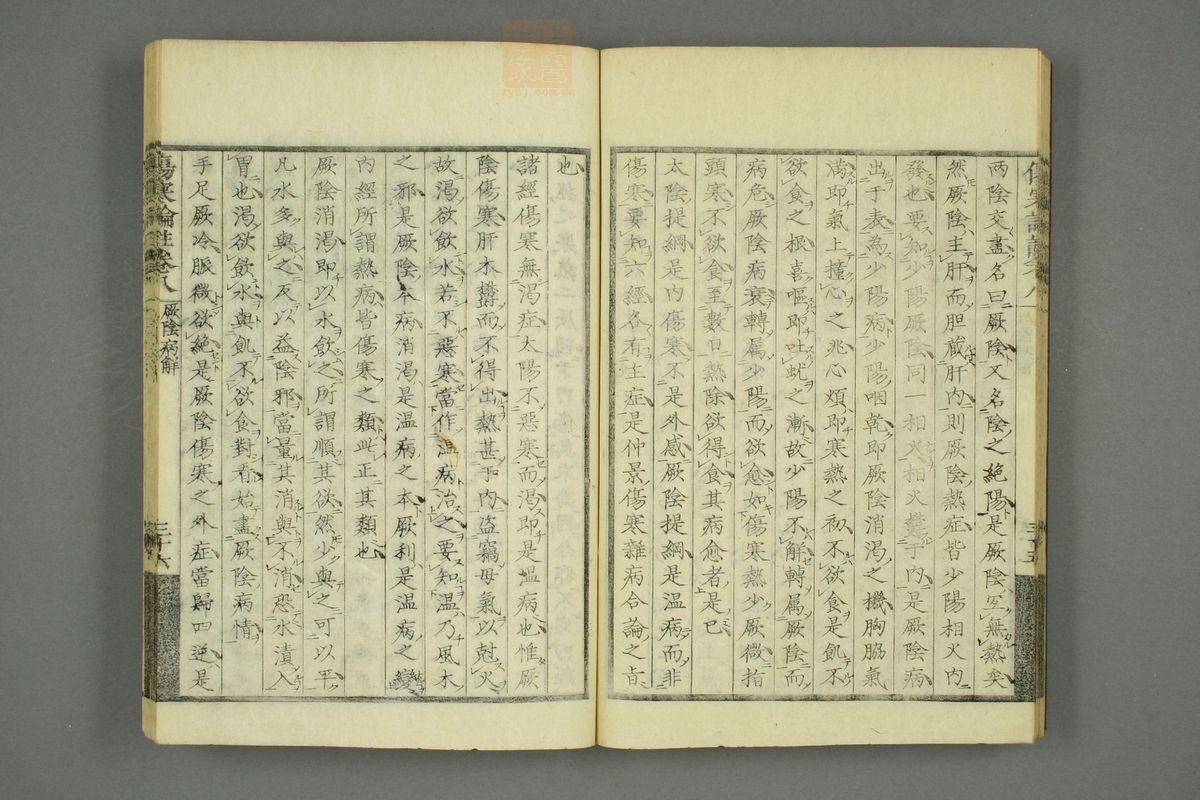 两陰交盡名曰厥陰又名陰之絶陽是厥陰宜無熱矣
然厥陰主肝而胆藏肝内則厥陰熱症皆少陽相火内
發也要知少陽厥陰同一相火相火欝于内是厥陰病
出于表為少陽病少陽咽乾即厥陰消渴之機胸脇氣
満即氣上撞心之兆心煩即寒熱之初不欲食是飢不
欲食之根喜嘔即吐蚘之漸故少陽不解轉属厥陰而
病危厥陰病衰轉属少陽而欲愈如傷寒熱少厥微指
頭寒不欲食至數日熱除欲得食其病愈者是已
太陰提綱是内傷寒不是外感厥陰提綱是温病而非
傷寒要知六經各有主症是仲景傷寒雜病合論之㫖
也
諸經傷寒無渴症太陽不惡寒而渴即是温病也惟厥
陰傷寒肝木欝而不得出熱甚于内盗竊母氣以尅火
故渴欲飲水若不惡寒當作温病治之要知温乃風木
之邪是厥陰本病消渴是温病之本厥利是温病之變
内經所謂熱病皆傷寒之類此正其類也
厥陰消渴即以水飲之所謂順其欲然少與之可以平
凡水多與之反以益陰邪當量其消與不消恐水漬入
胃也渴欲飲水與飢不欲食對看始盡厥陰病情
手足厥冷脈微欲絶是厥陰傷寒之外症當歸四逆是
傷寒論註卷八
厥陰病解
三十六
zysj.com.cn